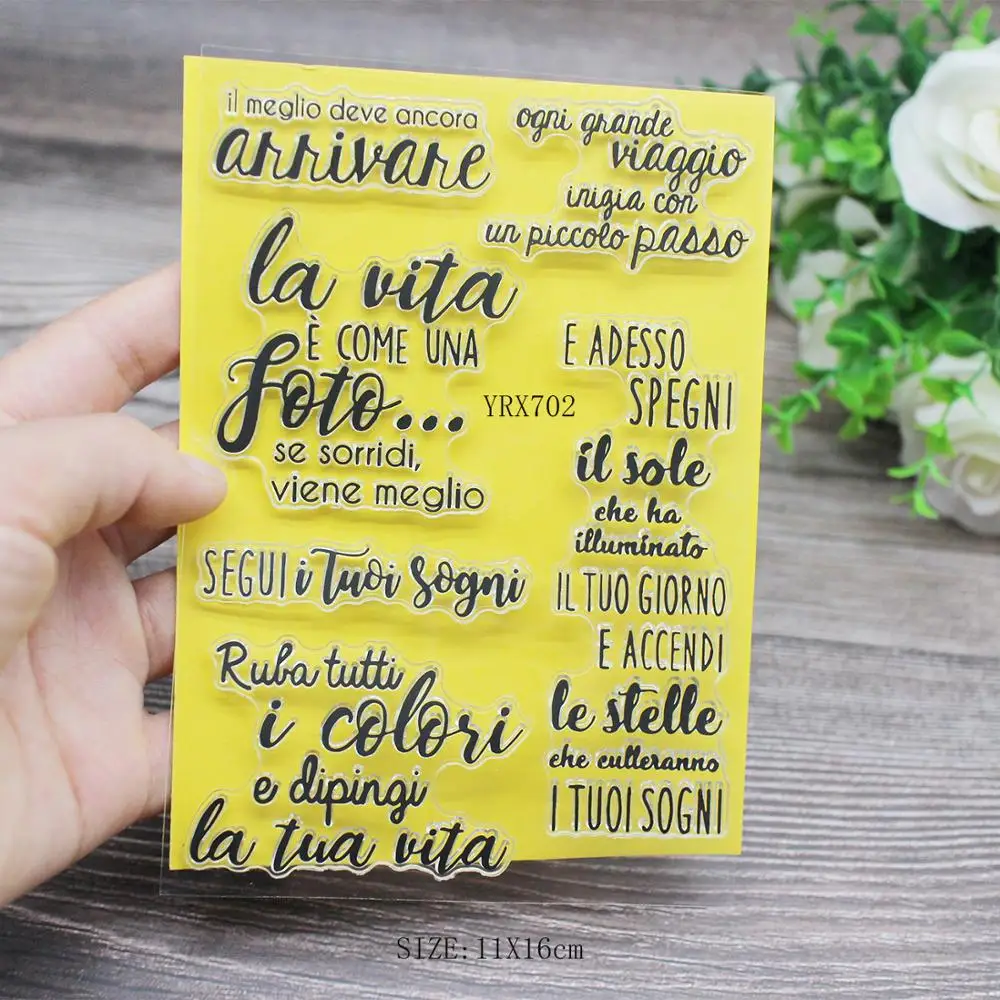 il meglio deve ancora
arrivare
ogni grande
viaggio
inizia con
un piccolo passo
la vita
È COME UNA
foto...
se sorridi,
viene meglio
YRX702
E ADESSO
SPEGNI
il sole
che ha
illuminato
IL TUO GIORNO
E ACCENDI
le stelle
che culleranno
I TUOI SOGNI
SEGUI i Tuoi Sogni
Ruba tutti
i colori
e dipingi
la tua vita
SIZE:11X16cm